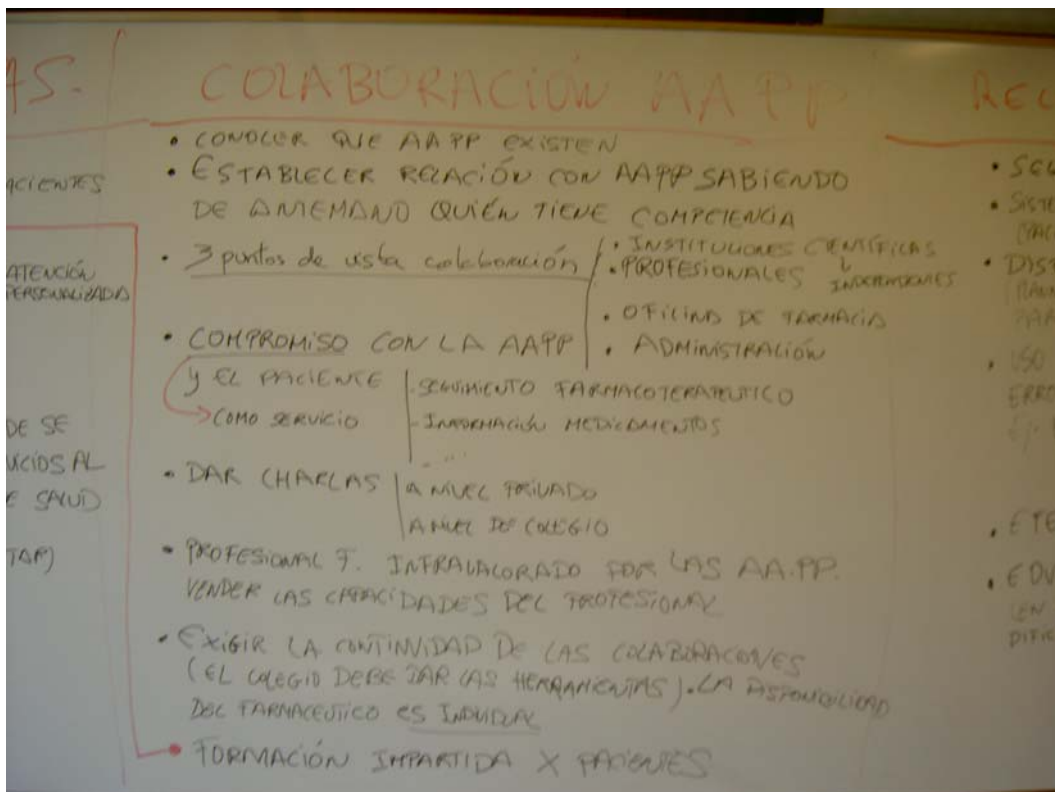 AS.
ACIENTES
ATENCIÓN
PERSONALIZADA
DE SE
VICIOS AL
E SALUD
TAP)
COLABORACIÓN AAPP
• CONOCER QUE AAPP EXISTEN
• ESTABLECER RELACIÓN CON AAPP SABIENDO
DE ANTEMANO QUIÉN TIENE COMPETENCIA
• 3 puntos de vista colaboración
• INSTITUCIONES CIENTÍFICAS
• PROFESIONALES
INDEPENDIENTES
• OFICINA DE FARMACIA
• ADMINISTRACIÓN
• COMPROMISO CON LA AAPP
y EL PACIENTE
→ COMO SERVICIO
- SEGUIMIENTO FARMACOTERAPEUTICO
- INFORMACIÓN MEDICAMENTOS
- ...
• DAR CHARLAS
A NIVEL PRIVADO
A NIVEL DE COLEGIO
• PROFESIONAL F. INFRAVALORADO POR LAS AA.PP.
VENDER LAS CAPACIDADES DEL PROFESIONAL
• EXIGIR LA CONTINUIDAD DE LAS COLABORACIONES
(EL COLEGIO DEBE DAR LAS HERRAMIENTAS). LA DISPONIBILIDAD
DEL FARMACEUTICO ES INDIVIDUAL
• FORMACIÓN IMPARTIDA X PACIENTES
REC
• SEG
• SISTE
(PAC
• DIST
PAR
• USO
ERRO
EJ.
• ETE
• EDU
(EN
DIFIC